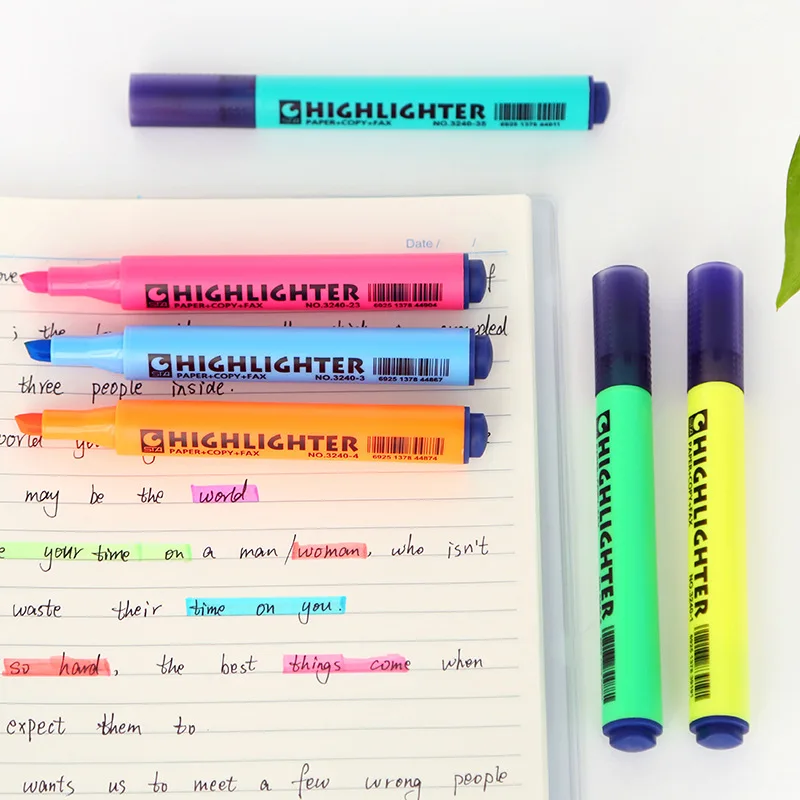 HIGHLIGHTER
PAPER+COPY+FAX NO.3240-35
6925 1378 44911
Date / /
HIGHLIGHTER
STA PAPER+COPY+FAX NO.3240-23
6925 1378 44904
; the
HIGHLIGHTER
STA PAPER+COPY+FAX NO.3240-3
6925 1378 44867
three people inside.
HIGHLIGHTER
STA PAPER+COPY+FAX NO.3240-4
6925 1378 44874
may be the world
your time on a man/woman, who isn't
waste their time on you.
so hard, the best things come when
expect them to
wants us to meet a few wrong people
HIGHLIGHTER
HIGHLIGHTER
PAPER+COPY+FAX